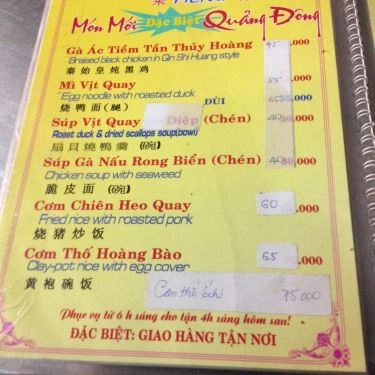 菜 MENU
Món Mới Đặc Biệt Quảng Đông
Gà Ác Tiềm Tần Thủy Hoàng 45.000
Braised black chicken in Qin Shi Huang style
秦始皇炖黑鸡
Mì Vịt Quay 55.000
Egg noodle with roasted duck
烧鸭面(腿) ĐÙI
Súp Vịt Quay Điệp (Chén) 40.000
Roast duck & dried scallops soup(bowl)
扇貝燒鴨羹 (碗)
Súp Gà Nấu Rong Biển (Chén) 40.000
Chicken soup with seaweed
脆皮面 (碗)
Cơm Chiên Heo Quay 60.000
Fried rice with roasted pork
烧猪炒饭
Cơm Thố Hoàng Bào 65.000
Clay-pot rice with egg cover
黄袍碗饭
Cơm thố ếch 75000
Phục vụ từ 6 h sáng cho tận 4h sáng hôm sau!
ĐẶC BIỆT: GIAO HÀNG TẬN NƠI